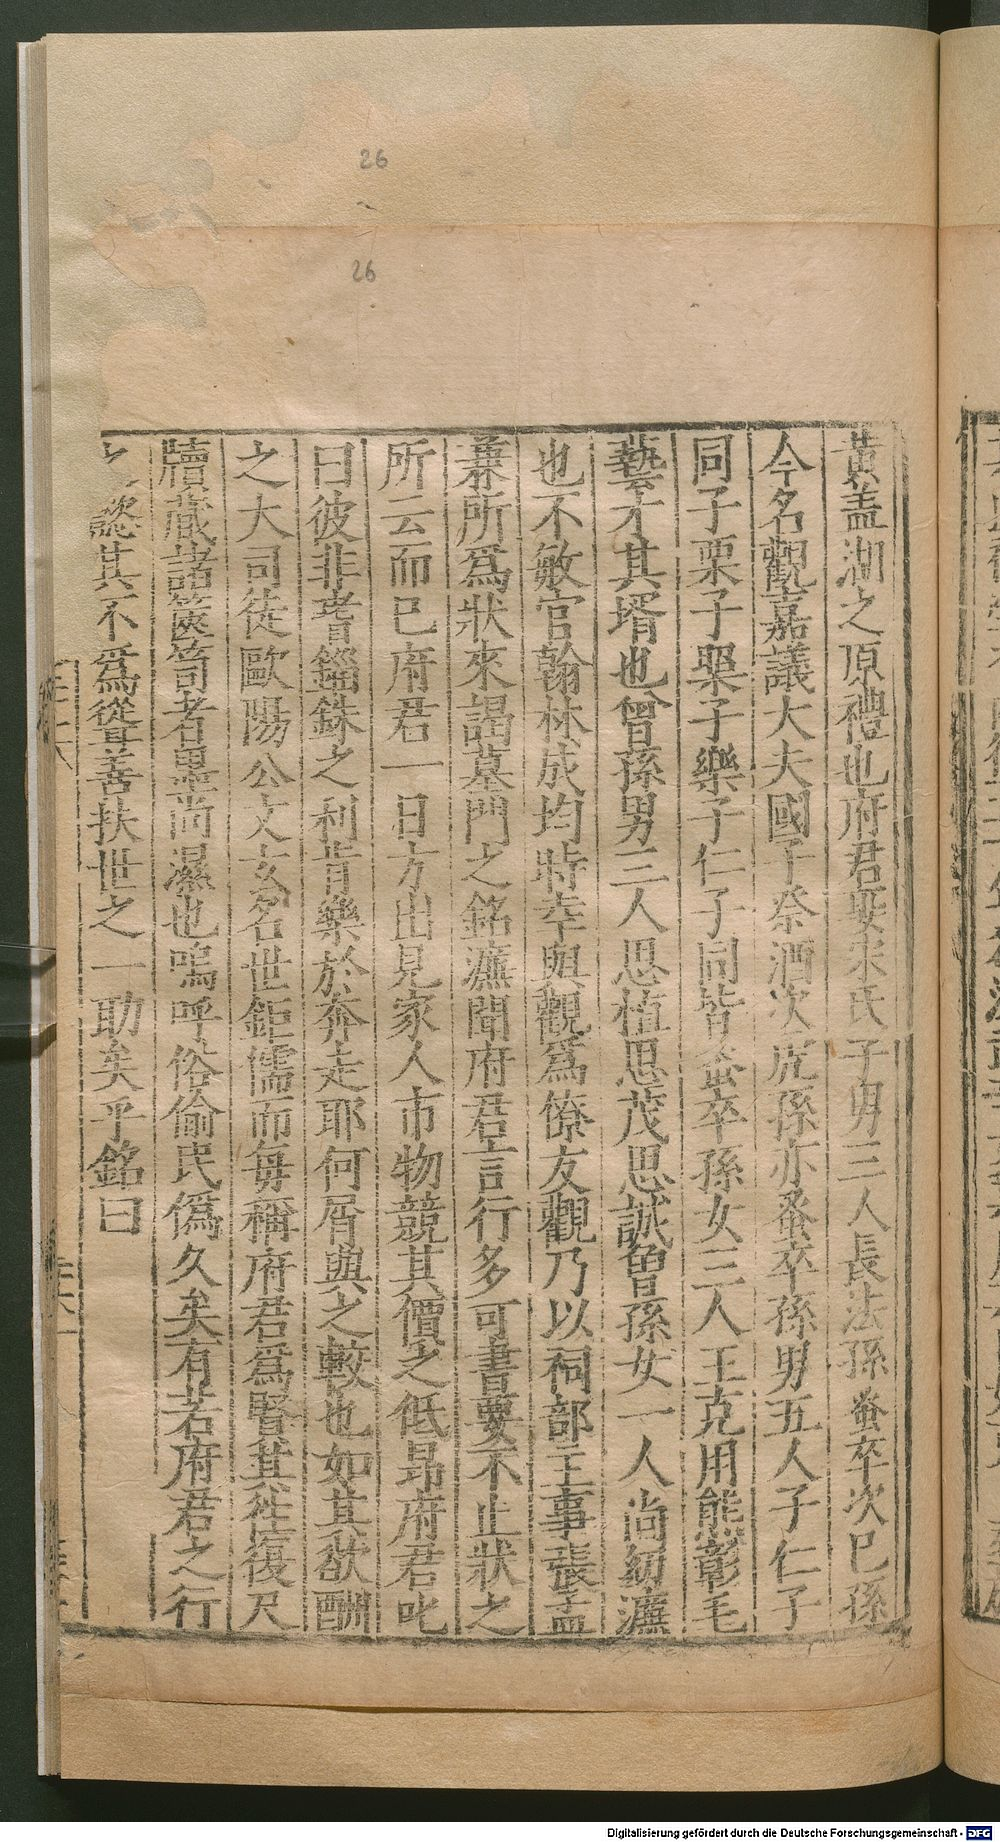 26
26
黃盖湖之原禮也府君娶宋氏子男三人長法孫蚤卒次巳孫
今名觀嘉議大夫國子祭酒次虎孫亦蚤卒孫男五人子仁子
同子栗子㮚子樂子仁子同皆蚤卒孫女三人王克用熊彰毛
藝才其壻也曾孫男三人思植思茂思誠曾孫女一人尚幼㵪
也不敏官翰林成均時幸與觀爲僚友觀乃以祠部主事張孟
兼所爲狀來謁墓門之銘㵪聞府君言行多可書要不止狀之
所云而已府君一日方出見家人市物競其價之低昻府君叱
曰彼非耆錙銖之利肯樂於奔走耶何屑與之較也如其欲酬
之大司徒歐陽公文玄名世鉅儒而毎稱府君爲賢其徃復尺
牘藏諸篋笥者墨尚濕也嗚呼俗偷民僞久矣有若府君之行
之懿其不爲從善扶世之一助矣乎銘曰
Digitalisierung gefördert durch die Deutsche Forschungsgemeinschaft - DFG